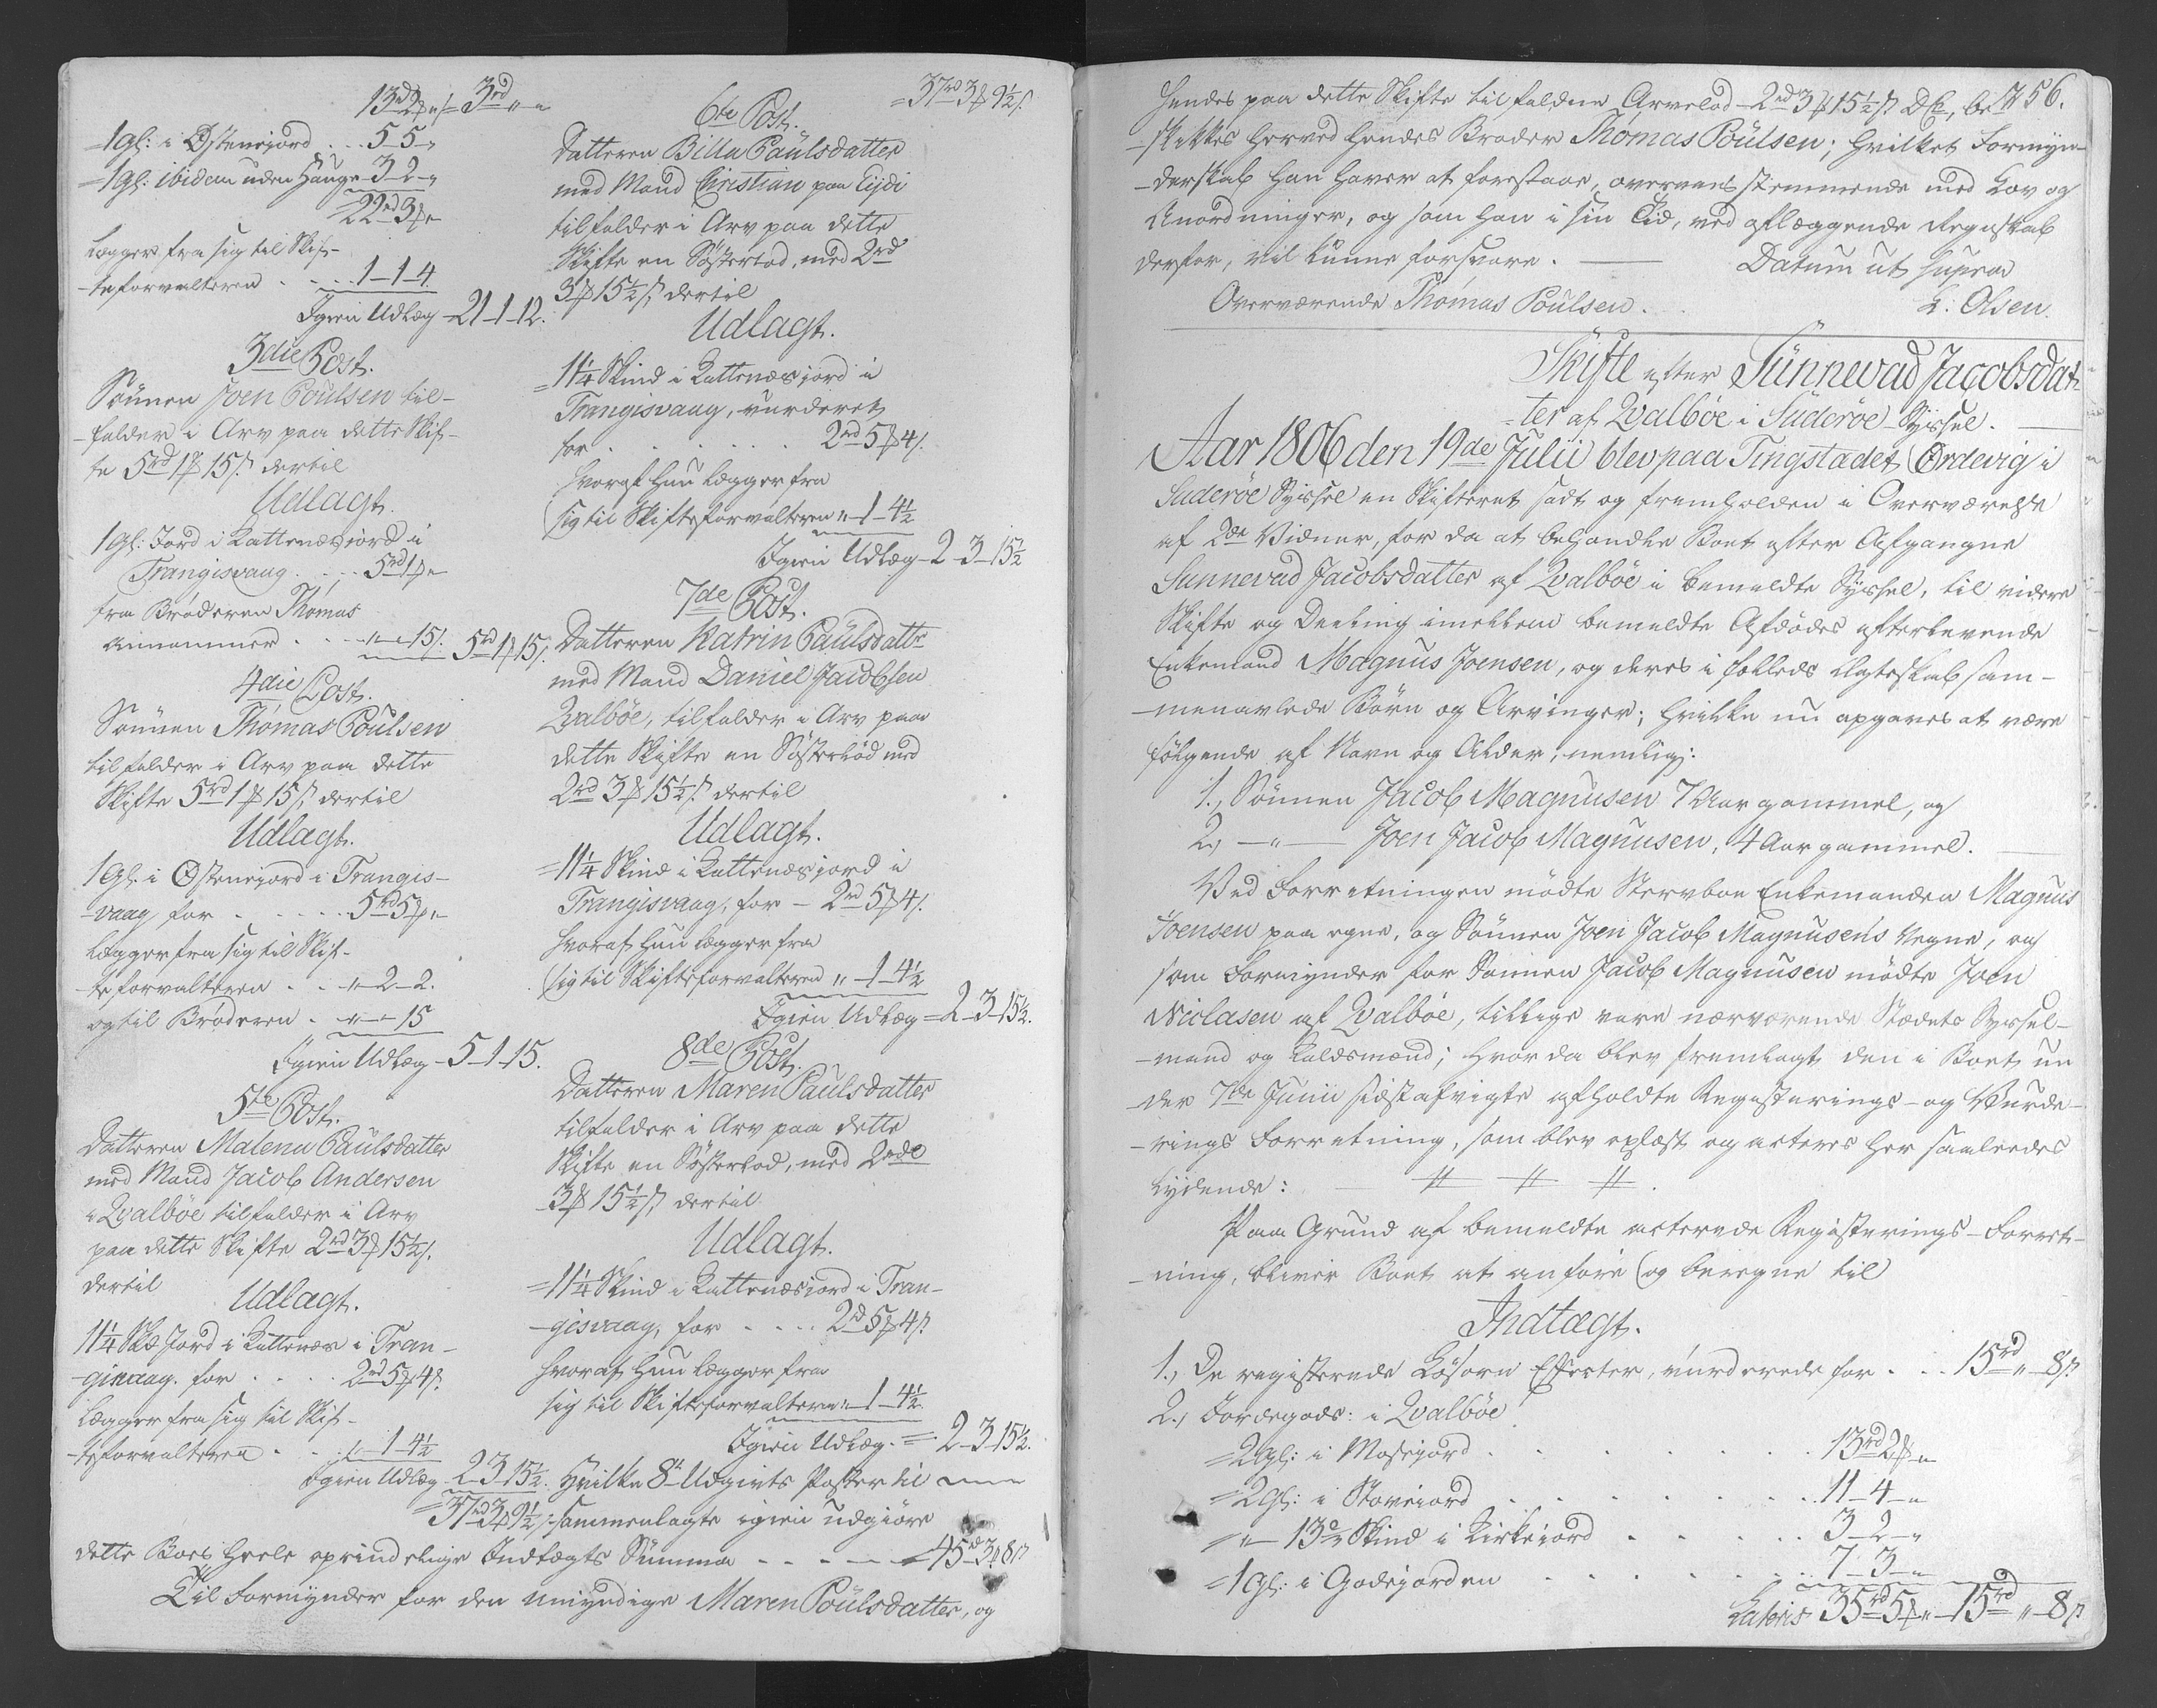 13rd 2ß " 3rd " "
1 Gl: i Østeniord . . 5-5-"
1 Gl: ibidem uden Hauge 3-2-"
22rd 3ß "
Legger fra sig til Skif-
-teforvalteren . . . 1-1-4
Igien Udlæg 21-1-12.
3die Post.
Sønnen Joen Poulsen til-
-falder i Arv paa dette Skif-
te 5rd 1ß 15/: dertil
Udlagt.
1 Gl: Jord i Rattenæsiord i
Trangisvaag . . . 5rd 1ß "
fra Broderen Thomas
annammer . . . "-"-15/: 5rd 1ß 15/:
4die Post.
Sønnen Thomas Poulsen
tilfalder i Arv paa dette
Skifte 5rd 1ß 15/: dertil
Udlagt.
1 Gl: i Østeniord i Trangis-
-vaag for . . . . . 5rd 5ß "
legger fra sig til Skif-
-teforvalteren . . "-2-2.
og til Broderen . "-"-15
Igien Udlæg 5-1-15.
5te Post.
Datteren Malena Paulsdatter
med Mand Jacob Andersen
i Qvalbøe tilfalder i Arv
paa dette Skifte 2rd 3ß 15½/:
dertil
Udlagt.
11¼ Sk: Jord i Rattenæs i Tran-
-gisvaag. for . . . . 2rd 5ß 4/:
legger fra sig til Skif-
-teforvalteren . . "-1-4½
Igien Udlæg 2-3-15½.
= 37rd 3ß 9½/:
= 37rd 3ß 9½/:
6te Post.
Datteren Billa Paulsdatter
med Mand Christian paa Eijdi
tilfalder i Arv paa dette
Skifte en Søsterlod, med 2rd
3ß 15½/: dertil
Udlagt.
= 11¼ Skind i Rattenæsiord i
Trangisvaag, vurderet
for . . . . . . . 2rd 5ß 4/:
hvoraf hun legger fra
sig til Skifteforvalteren "-1-4½
Igien Udlæg 2-3-15½
7de Post.
Datteren Katrin Paulsdattr
med Mand Daniel Jacobsen
Qvalbøe, tilfalder i Arv paa
dette Skifte en Søsterlod med
2rd 3ß 15½/: dertil
Udlagt.
= 11¼ Skind i Rattenæsiord i
Trangisvaag, for - 2rd 5ß 4/:
hvoraf hun legger fra
sig til Skifteforvalteren "-1-4½
Igien Udlæg = 2-3-15½.
8de Post.
Datteren Maren Paulsdatter
tilfalder i Arv paa dette
Skifte en Søsterlod, med 2rd
3ß 15½/: dertil
Udlagt.
= 11¼ Skind i Rattenæsiord i Tran-
-gisvaag, for . . . . 2rd 5ß 4/:
hvoraf hun legger fra
sig til Skifteforvalteren "-1-4½
Igien Udlæg. = 2-3-15½.
Hvilke 8te Udgivts Poster til
sammenlagte igien udgiøre
dette Boes heele oprindelige Indtægts Summa - - - - - 45rd 3ß 8/:
Til Formynder for den umyndige Maren Poulsdatter, og
hendes paa dette Skifte tilfaldene Arvelod 2rd 3ß 15½/: DC, be- 256.
-skikkes herved hendes Broder Thomas Poulsen; hvilket Formyn-
-derskab han haver at forestaae, overeensstemmende med Lov og
Anordninger, og som han i sin Tid, ved aflæggende Regnskab
derfor, vil kunne forsvare. Datum ut supra
Overværende Thomas Poulsen. L: Olsen.
Skifte efter Sünnevad Jacobsdat-
-ter af Qvalbøe i Süderøe Syssel.
Aar 1806 den 19de Julii blev paa Tingstædet Ørdevig i
Suderøe Syssel en Skifteret sadt og fremholden i Overværelse
af 2de Vidner, for da at behandle Boet efter Afgangne
Sunnevad Jacobsdatter af Qvalbøe i bemeldte Syssel, til videre
Skifte og Deeling imellem bemeldte Afdødes efterlevende
Enkemand Magnus Joensen, og deres i fælleds Ægteskab sam-
-menavlede Børn og Arvinger; hvilke nu opgaves at være
følgende af Navn og Alder, nemlig:
1., Sønnen Jacob Magnusen 7 Aar gammel, og
2., -"- Joen Jacob Magnusen, 4 Aar gammel.
Ved Forretningen mødte Stervboe Enkemanden Magnus
Joensen paa egne, og Sønnen Joen Jacob Magnusens Vegne, og
som Formynder for Sønnen Jacob Magnusen mødte Joen
Niclasen af Qvalbøe, tillige vare nærværende Stædets Syssel-
-mand og Laldsmænd; hvor da blev fremlagt den i Boet un
-der 7de Junii sidstafvigte afholdte Registerings- og Vurde-
-rings Forretning, som blev oplæst og acteres her saaledes
lydende:
Paa Grund af bemeldte acterede Registerings-Forret-
-ning, bliver Boet at anføre og beregne til
Indtægt.
1., De registerede Løsøren Effecter, vurderede for . . . 15rd " 8/:
2., Jordegods: i Qvalbøe
= 2 Gl: i Mosejord . . . . . 13rd 2ß "
= 2 Gl: i Stoveiord . . . . . 11-4-"
= "- 13⅓ Skind i Kirkeiord . . . . 3-2-"
= 1 Gl: i Godejorden . . . . . 7-3-"
Lateris 35rd 5ß " 15rd " 8/: